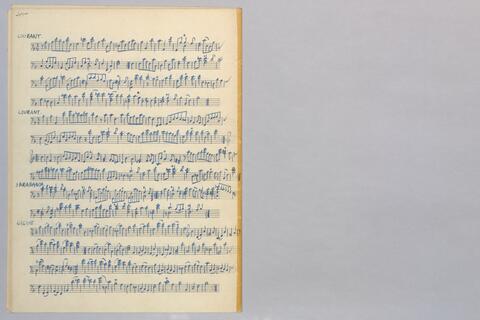 COURANT
COURANT
SARABANDE
GIGUE